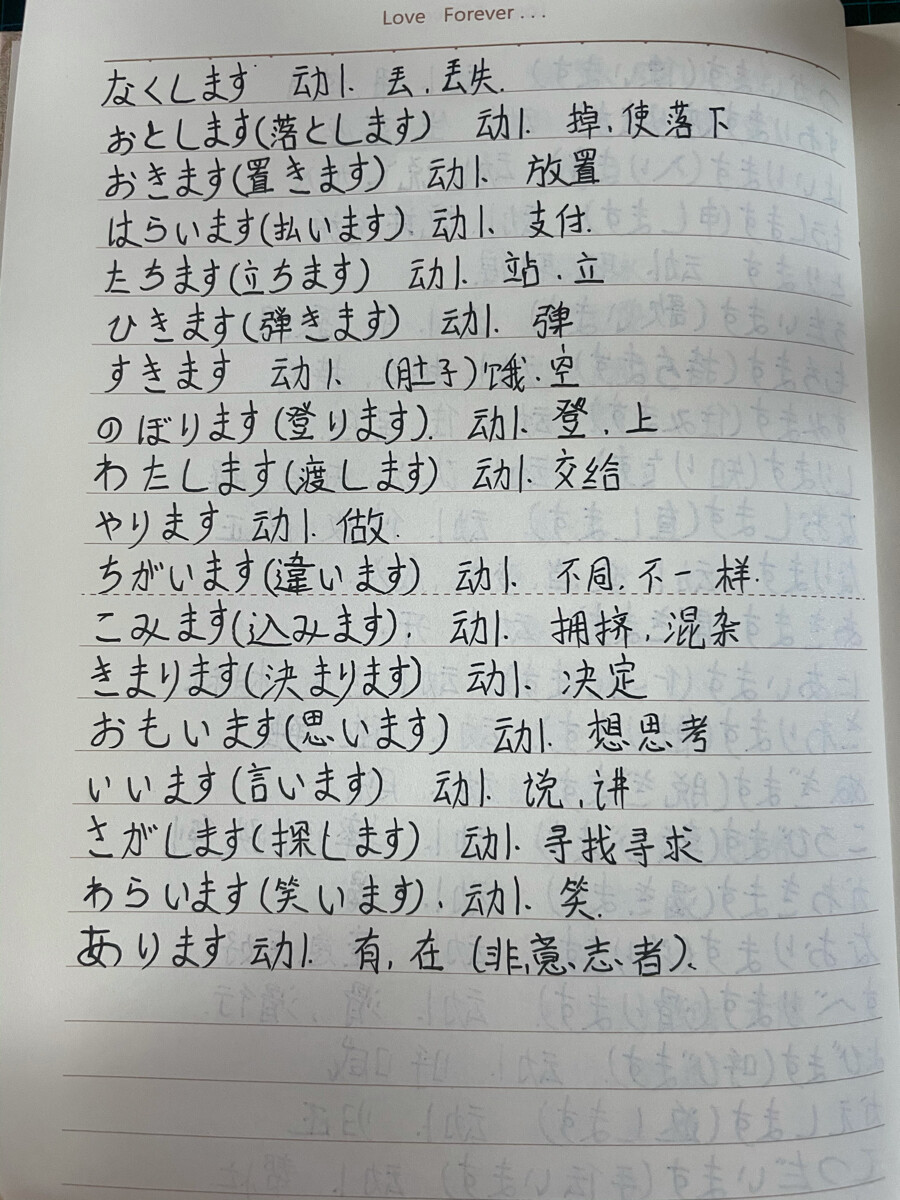 Love Forever...
なくします 动1. 丢,丢失.
おとします(落とします) 动1. 掉,使落下
おきます(置きます) 动1. 放置
はらいます(払います). 动1. 支付.
たちます(立ちます) 动1. 站.立
ひきます(弾きます) 动1. 弹
すきます 动1. (肚子)饿.空
のぼります(登ります). 动1. 登,上
わたします(渡します) 动1. 交给
やります 动1. 做.
ちがいます(違います) 动1. 不同.不一样.
こみます(込みます). 动1. 拥挤,混杂
きまります(決まります) 动1. 决定
おもいます(思います) 动1. 想思考
いいます(言います) 动1. 说,讲
さがします(探します) 动1. 寻找寻求
わらいます(笑います). 动1. 笑.
あります 动1. 有,在 (非意志者).